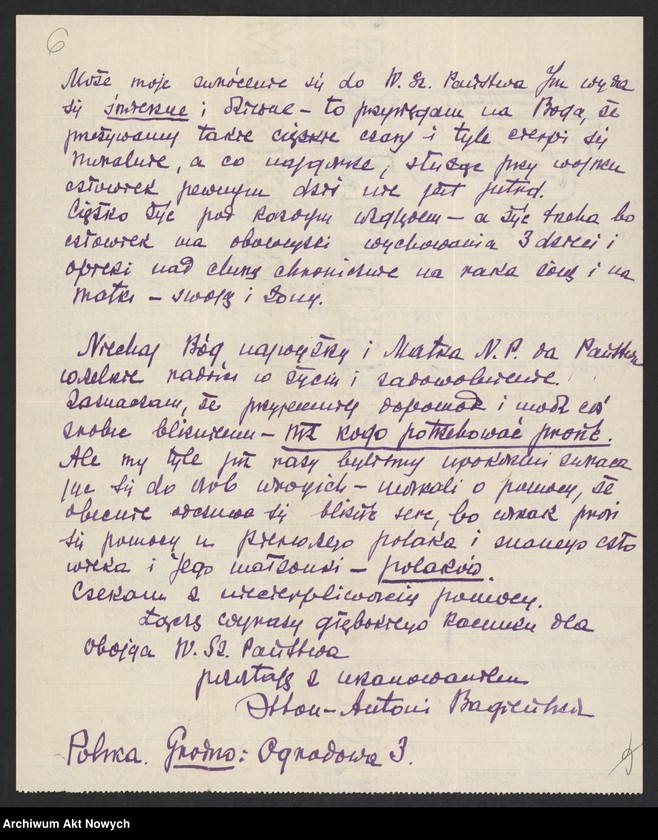 6
Może moje zwrócenie się do W. Sz. Państwa Im wyda
się śmieszne i dziwne – to przysięgam na Boga, że
przeżywamy takie ciężkie czasy i tyle cierpi się
moralnie, a co najgorsze, służąc przy wojsku
człowiek pewnym dziś nie jest jutra.
Ciężko żyć pod każdym względem – a żyć trzeba bo
człowiek ma obowiązki wychowania 3 dzieci i
opieki nad chorą chronicznie na raka żoną i na
matki – swoją i żony.
Niechaj Bóg najwyższy i Matka N. P. da Państwu
wszelkie radości w życiu i zadowolenie.
Zaznaczam, że przyjemniej dopomóc i módz coś
zrobić bliźniemu – niż kogo potrzebować prosić.
Ale my tyle już razy byliśmy upokorzeni zwraca
jąc się do osób wrogich – o pomocy, że
obecnie odczuwa się bliskość serc, bo wszak prosi
się pomocy u pierwszego polaka i znanego czło
wieka i Jego małżonki – polaków.
Czekam z niecierpliwością pomocy.
Łączę wyrazy głębokiego szacunku dla
obojga W. Sz. Państwa
pozostaję z uszanowaniem
Antoni
Polska. Grodno: Ogrodowa 3.
Archiwum Akt Nowych